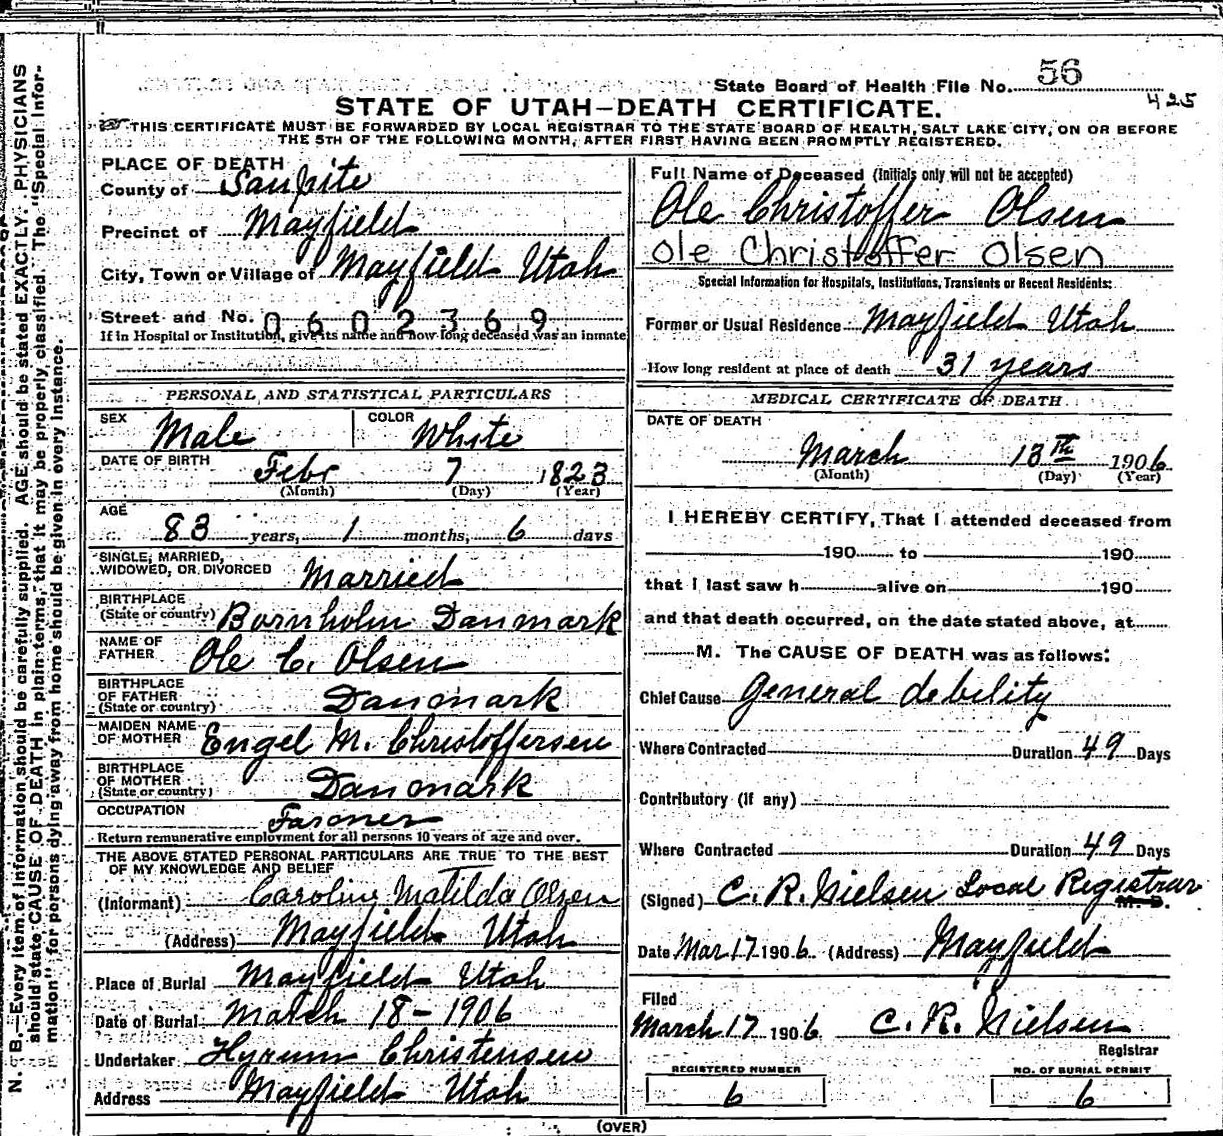 State Board of Health File No. 56
425
STATE OF UTAH—DEATH CERTIFICATE.
THIS CERTIFICATE MUST BE FORWARDED BY LOCAL REGISTRAR TO THE STATE BOARD OF HEALTH, SALT LAKE CITY, ON OR BEFORE
THE 5TH OF THE FOLLOWING MONTH, AFTER FIRST HAVING BEEN PROMPTLY REGISTERED.
N. B.—Every item of information should be carefully supplied. AGE should be stated EXACTLY. PHYSICIANS
should state CAUSE OF DEATH in plain terms, that it may be properly classified. The "Special Infor-
mation" for persons dying away from home should be given in every instance.
PLACE OF DEATH
County of Sanpite
Precinct of Mayfield
City, Town or Village of Mayfield Utah
Street and No. 0602369
If in Hospital or Institution, give its name and how long deceased was an inmate
PERSONAL AND STATISTICAL PARTICULARS
SEX Male COLOR White
DATE OF BIRTH Febr 7 1823
(Month) (Day) (Year)
AGE
83 years, 1 months, 6 days
SINGLE, MARRIED,
WIDOWED, OR DIVORCED Married
BIRTHPLACE
(State or country) Bornholm Danmark
NAME OF
FATHER Ole C. Olsen
BIRTHPLACE
OF FATHER
(State or country) Danmark
MAIDEN NAME
OF MOTHER Engel M. Christoffersen
BIRTHPLACE
OF MOTHER
(State or country) Danmark
OCCUPATION Farmer
Return remunerative employment for all persons 10 years of age and over.
THE ABOVE STATED PERSONAL PARTICULARS ARE TRUE TO THE BEST
OF MY KNOWLEDGE AND BELIEF
(Informant) Caroline Matilda Olsen
(Address) Mayfield Utah
Place of Burial Mayfield Utah
Date of Burial March 18-1906
Undertaker Hyrum Christensen
Address Mayfield Utah
Full Name of Deceased (Initials only will not be accepted)
Ole Christoffer Olsen
Ole Christoffer Olsen
Special Information for Hospitals, Institutions, Transients or Recent Residents:
Former or Usual Residence Mayfield Utah
How long resident at place of death 31 years
MEDICAL CERTIFICATE OF DEATH
DATE OF DEATH
March 13th 1906
(Month) (Day) (Year)
I HEREBY CERTIFY, That I attended deceased from
190 to 190
that I last saw h alive on 190
and that death occurred, on the date stated above, at
M. The CAUSE OF DEATH was as follows:
Chief Cause general debility
Where Contracted Duration 49 Days
Contributory (if any)
Where Contracted Duration 49 Days
(Signed) C. R. Nielsen Local Registrar M. D.
Date Mar 17 1906 (Address) Mayfield
Filed
March 17 1906 C. R. Nielsen
Registrar
REGISTERED NUMBER NO. OF BURIAL PERMIT
6 6
(OVER)